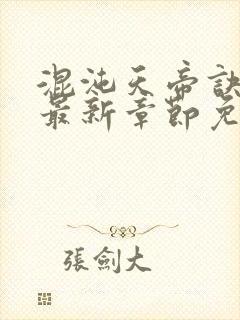 混沌天帝訣
最新章節免
張劍大